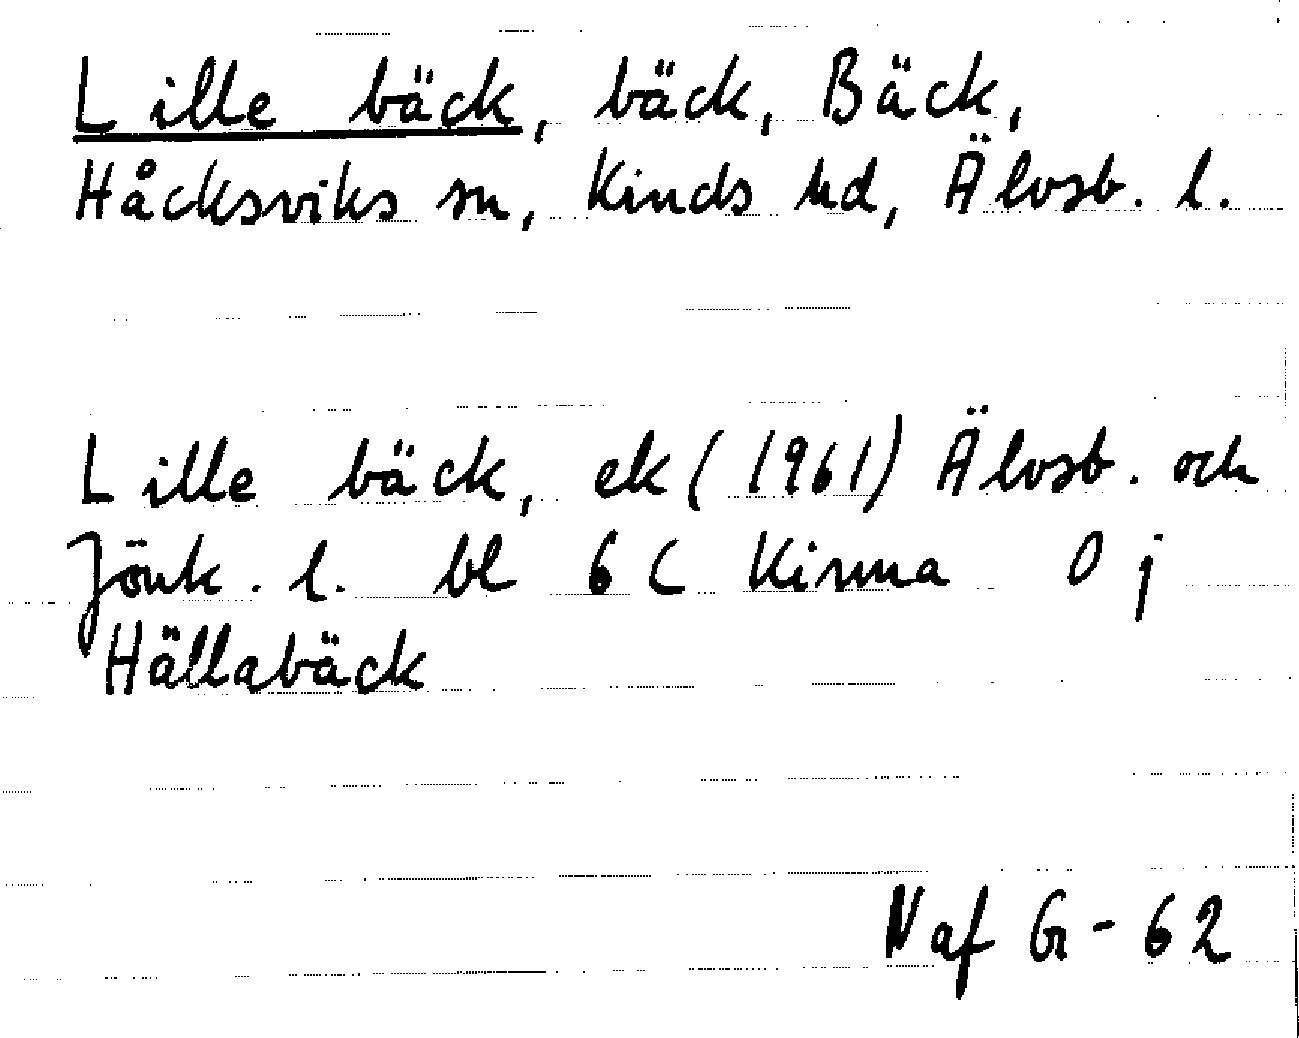 Lille bäck, bäck, Bäck,
Håcksviks sn, Kinds hd, Älvsb. l.
Lille bäck, ek (1961) Älvsb. och
Jönk. l. bl 6 C Kinna 0 j
Hällabäck
Naf G-62